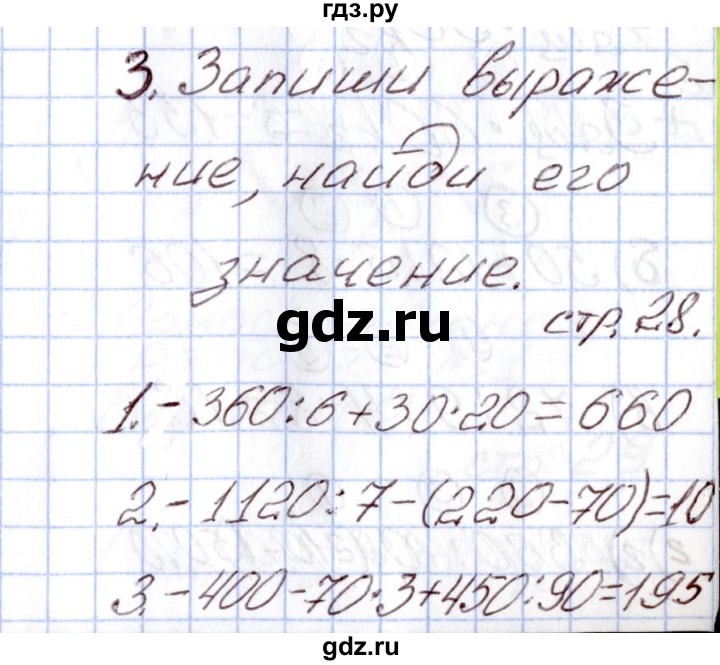 гдз.ру
3. Запиши выраже-
ние, найди его
значение.
gdz.ru
стр. 28.
1.- 360:6+30·20=660
2.- 1120:7-(220-70)=10
3.- 400-70·3+450:90=195
gdz.ru